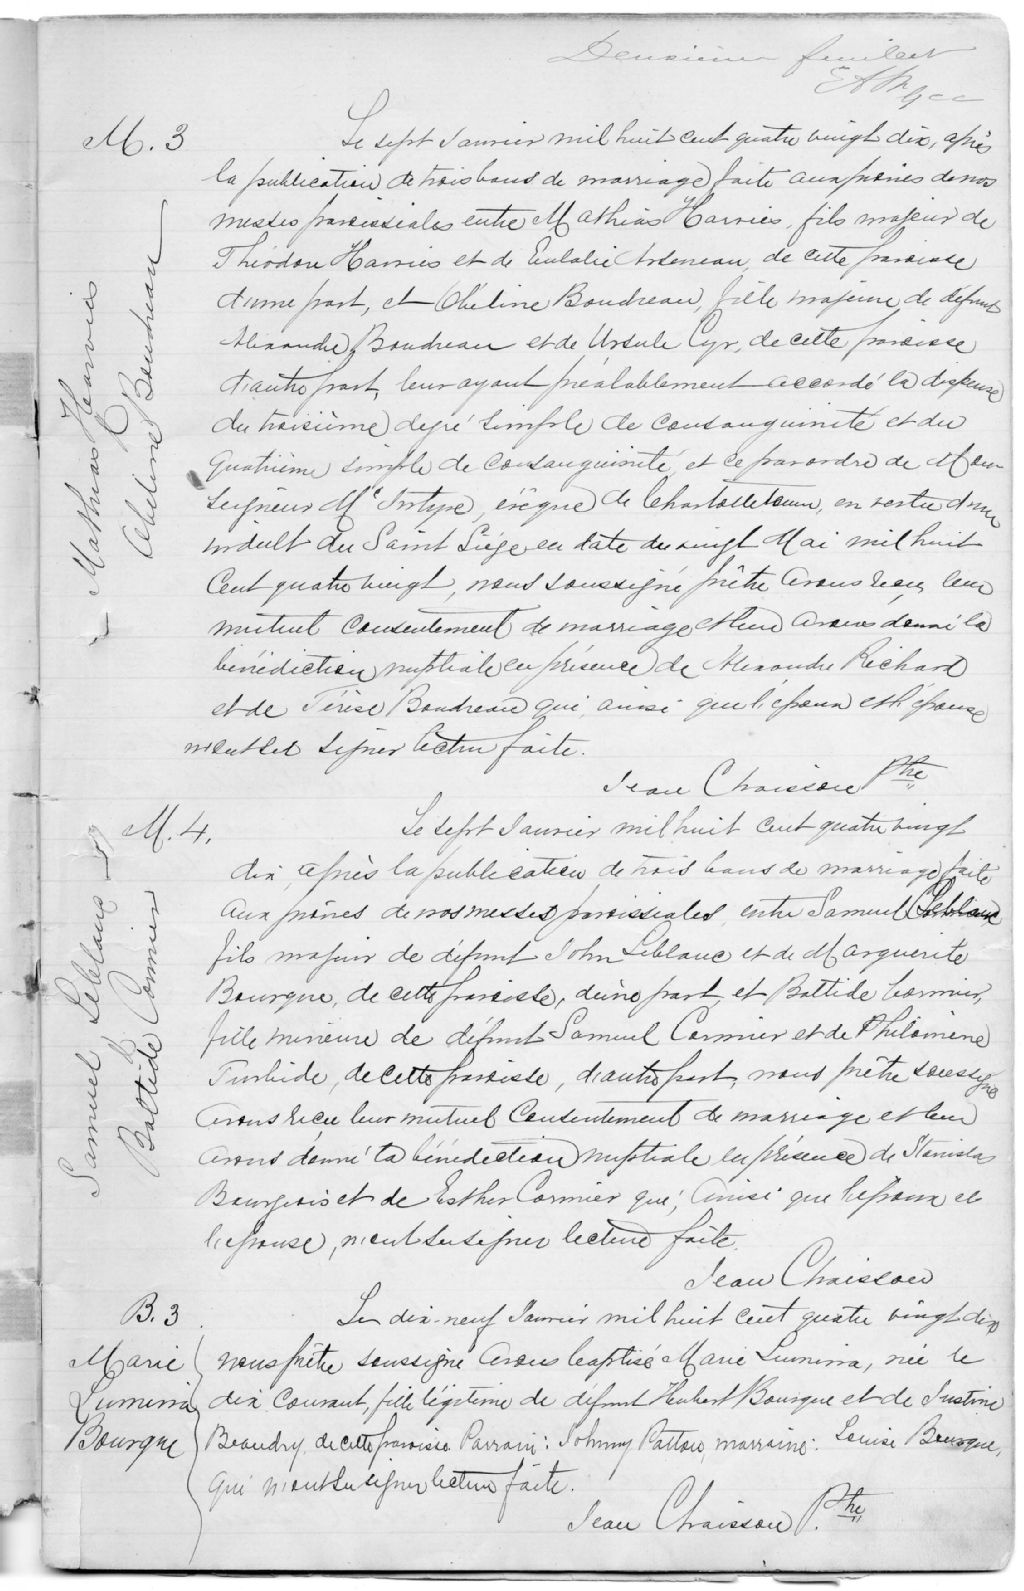 Deuxième feuillet
M. 3
Le sept Janvier mil huit cent quatre vingt dix, après
la publication de trois bans de marriage faite aux prônes de nos
messes paroissiales entre Mathias Harvies, fils majeur de
Théodore Harvies et de Eulalie Arseneau, de cette paroisse
d'une part, et Obéline Boudreau, fille majeure de défunt
Alexandre Boudreau et de Ursule Cyr, de cette paroisse
d'autre part, leur ayant préalablement accordé la dispense
du troisième degré simple de consanguinité et du
quatrième simple de consanguinité, et ce par ordre de Mon
seigneur McIntyre, évêque de Charlottetown, en vertu d'un
indult du Saint Siége en date du vingt Mai mil huit
cent quatre vingt, nous soussigné prêtre avons reçu leur
mutuel consentement de marriage et leur avons donné la
bénédiction nuptiale en présence de Alexandre Richard
et de Térèse Boudreau qui, ainsi que l'époux et l'épouse
n'ont su signer lecture faite.
Jean Chaisson Ptre
Mathias Harvies
Obeline Boudreau
M. 4.
Le sept Janvier mil huit cent quatre vingt
dix, après la publication de trois bans de marriage faite
aux prônes de nos messes paroissiales, entre Samuel Leblanc
fils majeur de défunt John Leblanc et de Marguerite
Bourque, de cette paroisse, d'une part, et Battide Cormier,
fille mineure de défunt Samuel Cormier et de Philomène
Turbide, de cette paroisse, d'autre part, nous prêtre soussigné
avons reçu leur mutuel consentement de marriage et leur
avons donné la bénédiction nuptiale en présence de Stanislas
Bourgeois et de Esther Cormier qui, ainsi que l'époux et
l'épouse, n'ont su signer lecture faite.
Jean Chaisson
Samuel Leblanc &
Battide Cormier
B. 3
Le dix-neuf Janvier mil huit cent quatre vingt dix
nous prêtre soussigné avons baptisé Marie Lumina, née le
dix courant, fille légitime de défunt Hubert Bourque et de Justine
Beaudry, de cette paroisse. Parrain: Johnny Patton, marraine: Louise Bourque,
qui n'ont su signer lecture faite.
Jean Chaisson Ptre
Marie
Lumina
Bourque